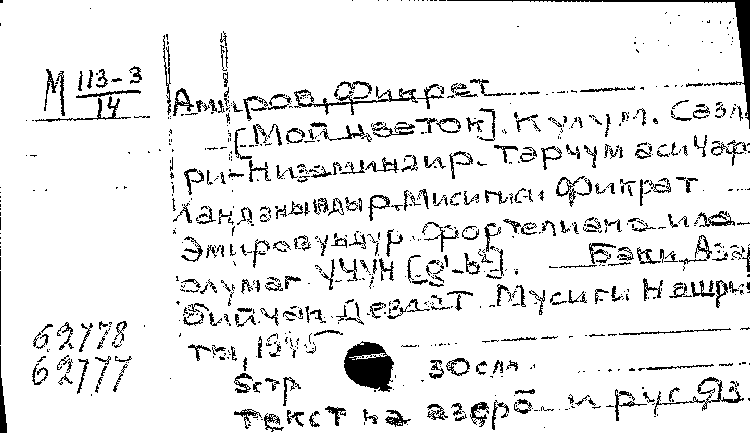 М 113-3
14
Амиров, Фикрет
[Мой цветок]. Кулум. Сазл
ри-Низаминдир. Тәрчүмәси Чафәр
Хандәныдыр. Мисигиси Фикрәт
Әмировундур. Фортепиано илә
олумаг үчүн [g¹-b²]. Баки, Азәр
бийчан Девләт Мусиги Нәшрий
ты, 1945
62778
62777
5стр 30см.
текст на азерб. и рус. яз